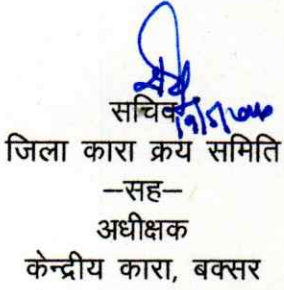 सचिव
जिला कारा क्रय समिति
–सह–
अधीक्षक
केन्द्रीय कारा, बक्सर